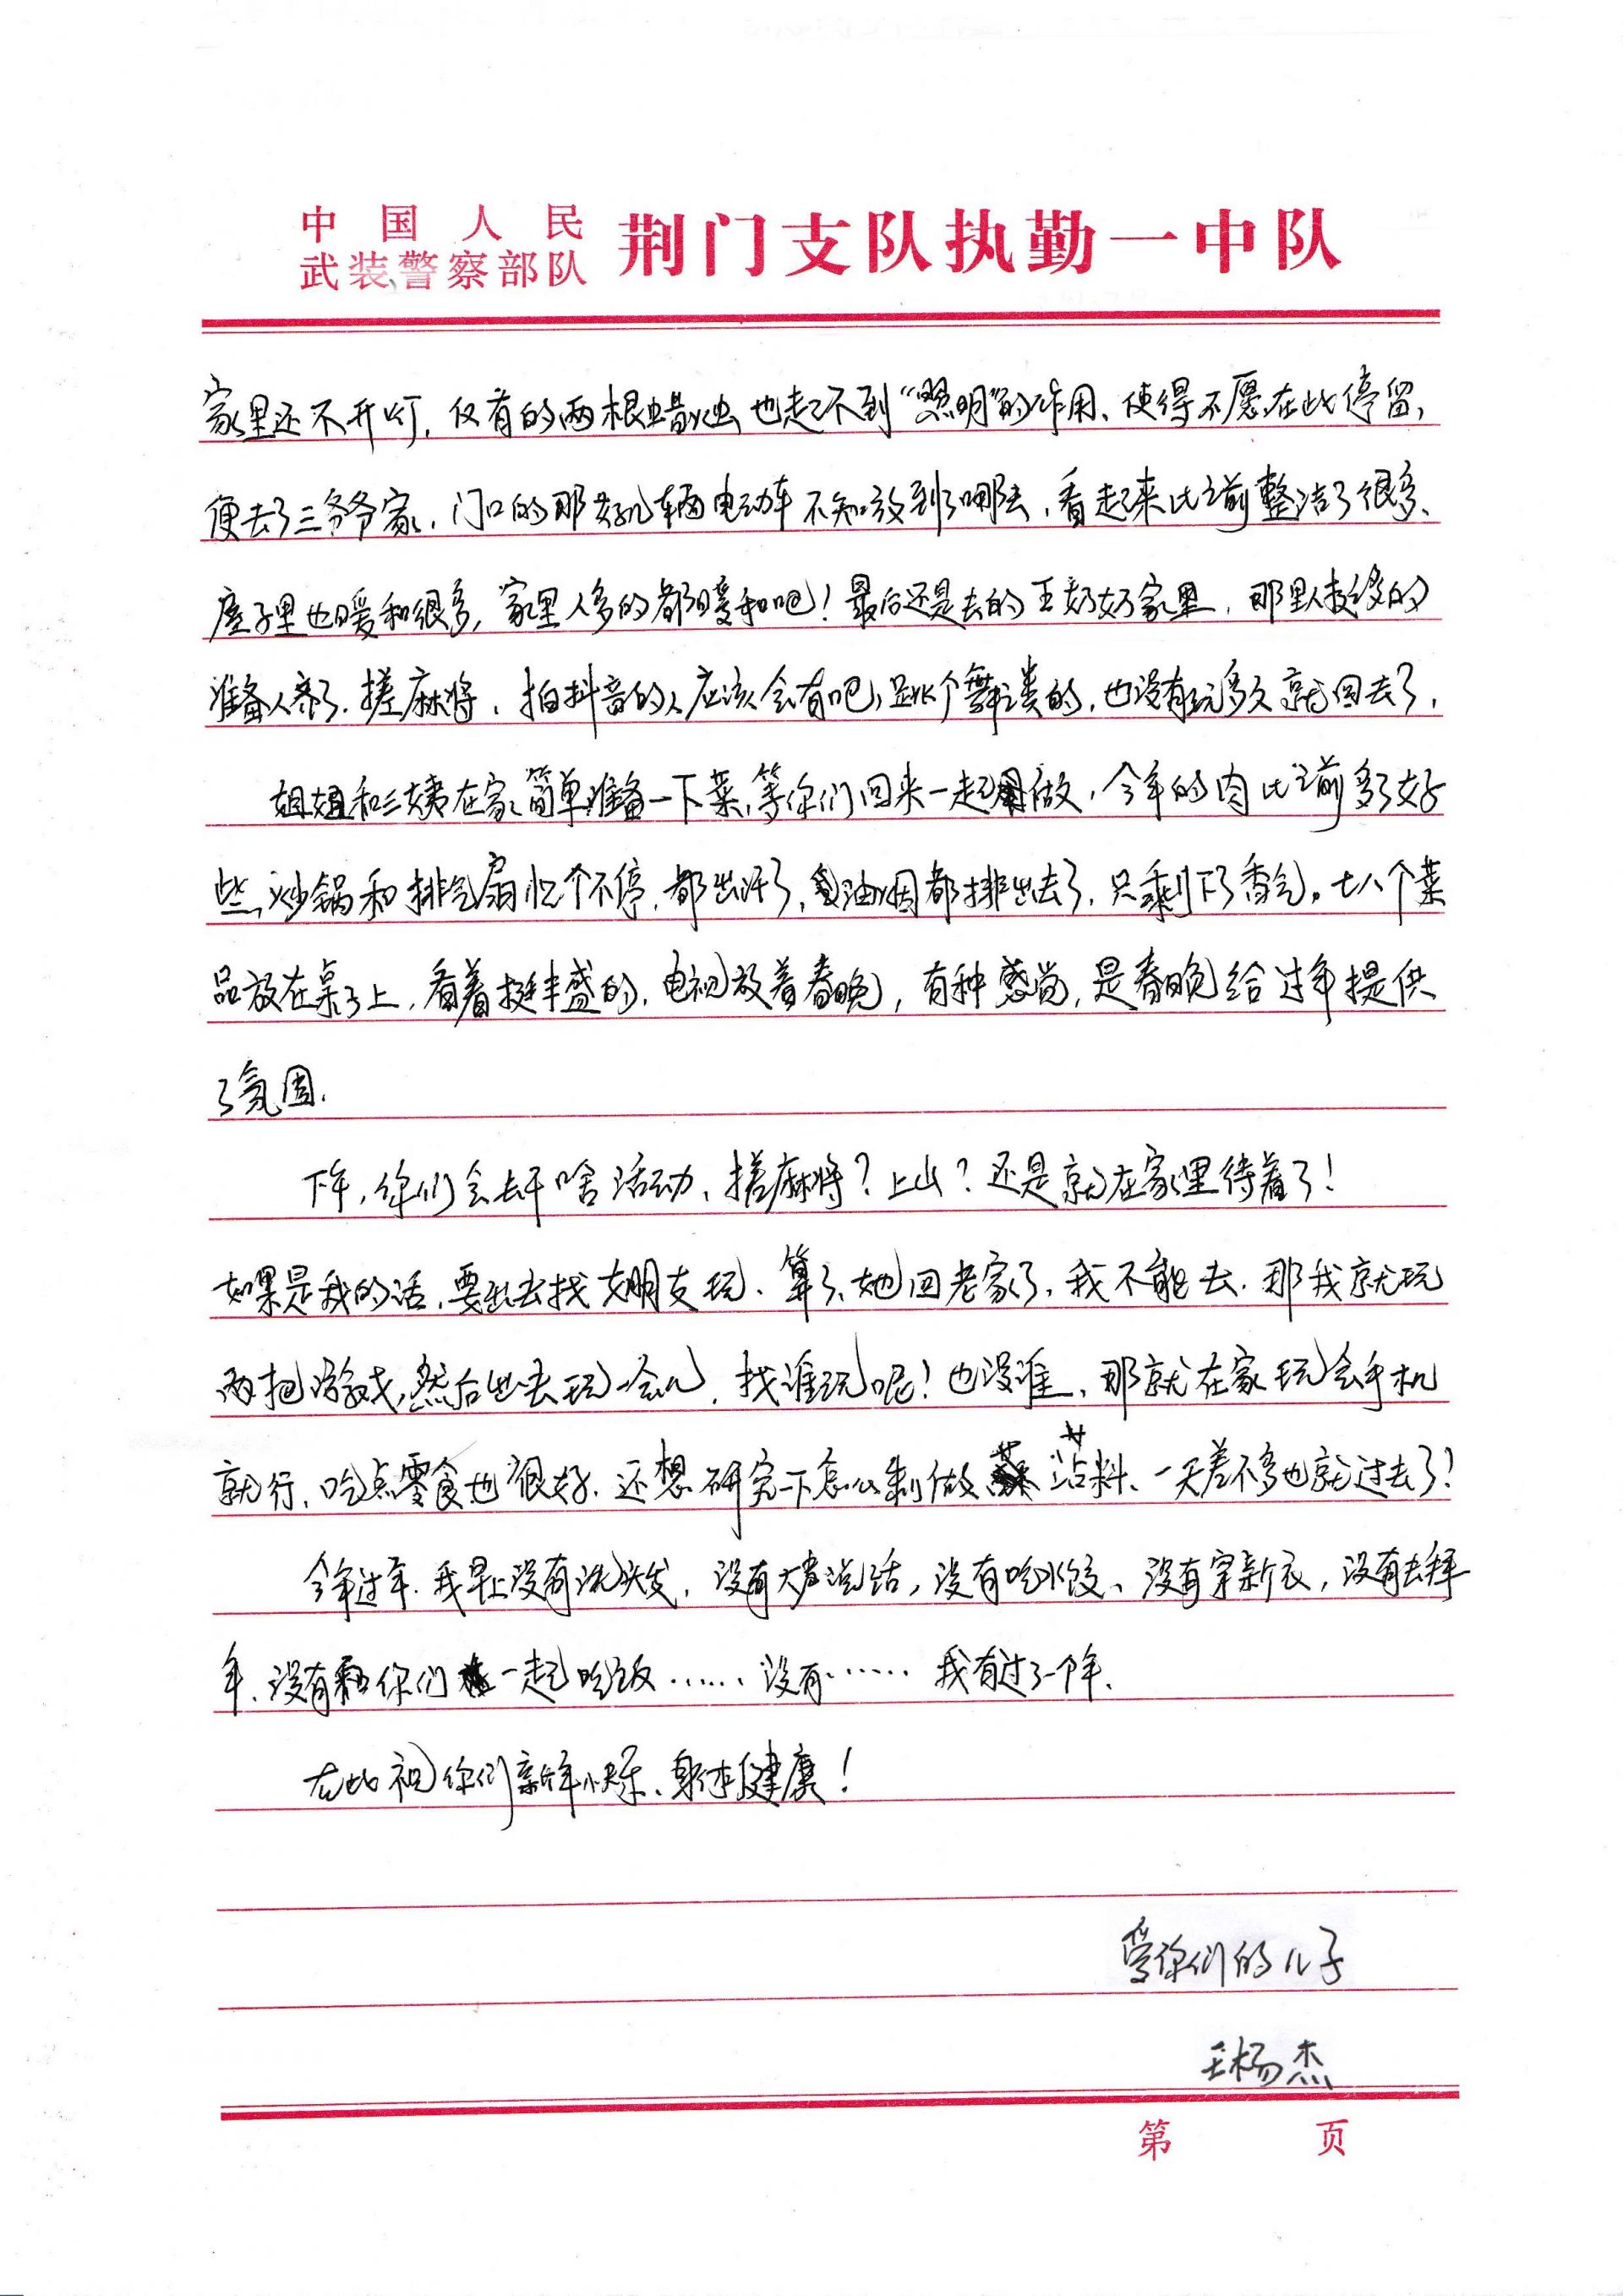 中国人民
武装警察部队 荆门支队执勤一中队
家里还不开灯，仅有的两根蜡烛也起不到“照明”的作用、使得不愿在此停留，
便去了三爷爷家，门口的那好几辆电动车不知放到了哪去，看起来比之前整洁了很多、
屋子里也暖和很多，家里人多的都暖和吧！最后还是去的王奶奶家里，那里人挺多的
准备人齐了．搓麻将，拍抖音的人应该会有吧，跳个舞之类的，也没有玩多久就回去了，
姐姐和三姨在家简单准备一下菜，等你们回来一起做，今年的肉比之前多了好
些，炒锅和排气扇忙个不停，都出汗了，油烟都排出去了，只剩下了香气。七八个菜
品放在桌子上，看着挺丰盛的，电视放着春晚，有种感觉，是春晚给过年提供
了氛围．
下午，你们会去干啥活动、搓麻将？上山？还是就在家里待着了！
如果是我的话，要出去找女朋友玩、算了、她回老家了，我不能去．那我就玩
两把游戏，然后出去玩一会儿，找谁玩呢！也没谁，那就在家玩会手机
就行、吃点零食也很好．还想研究下怎么制作蘸料、一天差不多也就过去了！
今年过年．我早上没有洗头发，没有大声说话，没有吃水饺、没有穿新衣，没有去拜
年、没有和你们一起吃饭……没有……我有过了一个年、
在此祝你们新年快乐、身体健康！
爱你们的儿子
王杨杰
第 页